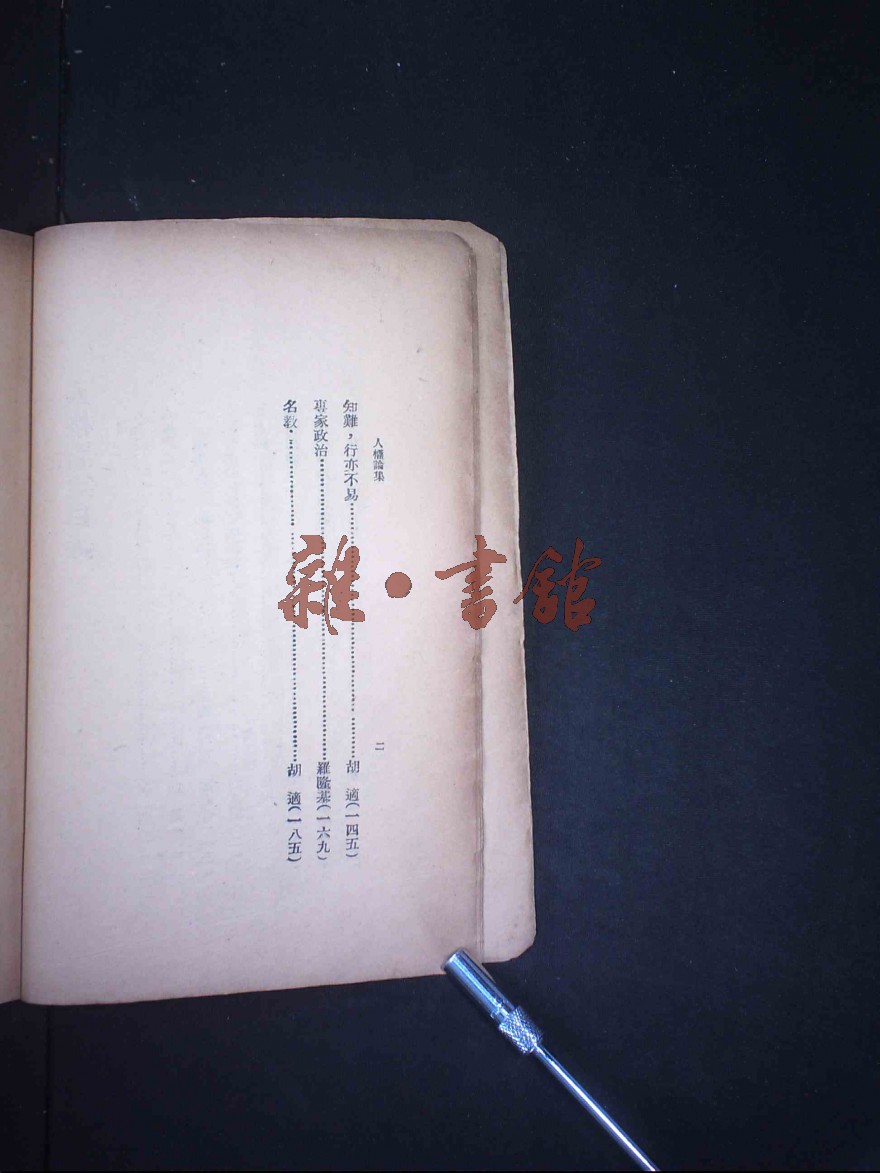 人權論集
二
知難，行亦不易………………胡　適(一四五)
專家政治………………羅隆基(一六九)
名教………………胡　適(一八五)
雜•書館